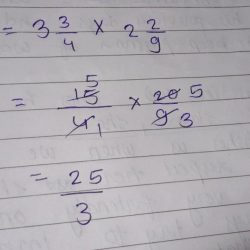 = 3 3/4 × 2 2/9
= 15 5/4 1 × 20 5/9 3
= 25/3